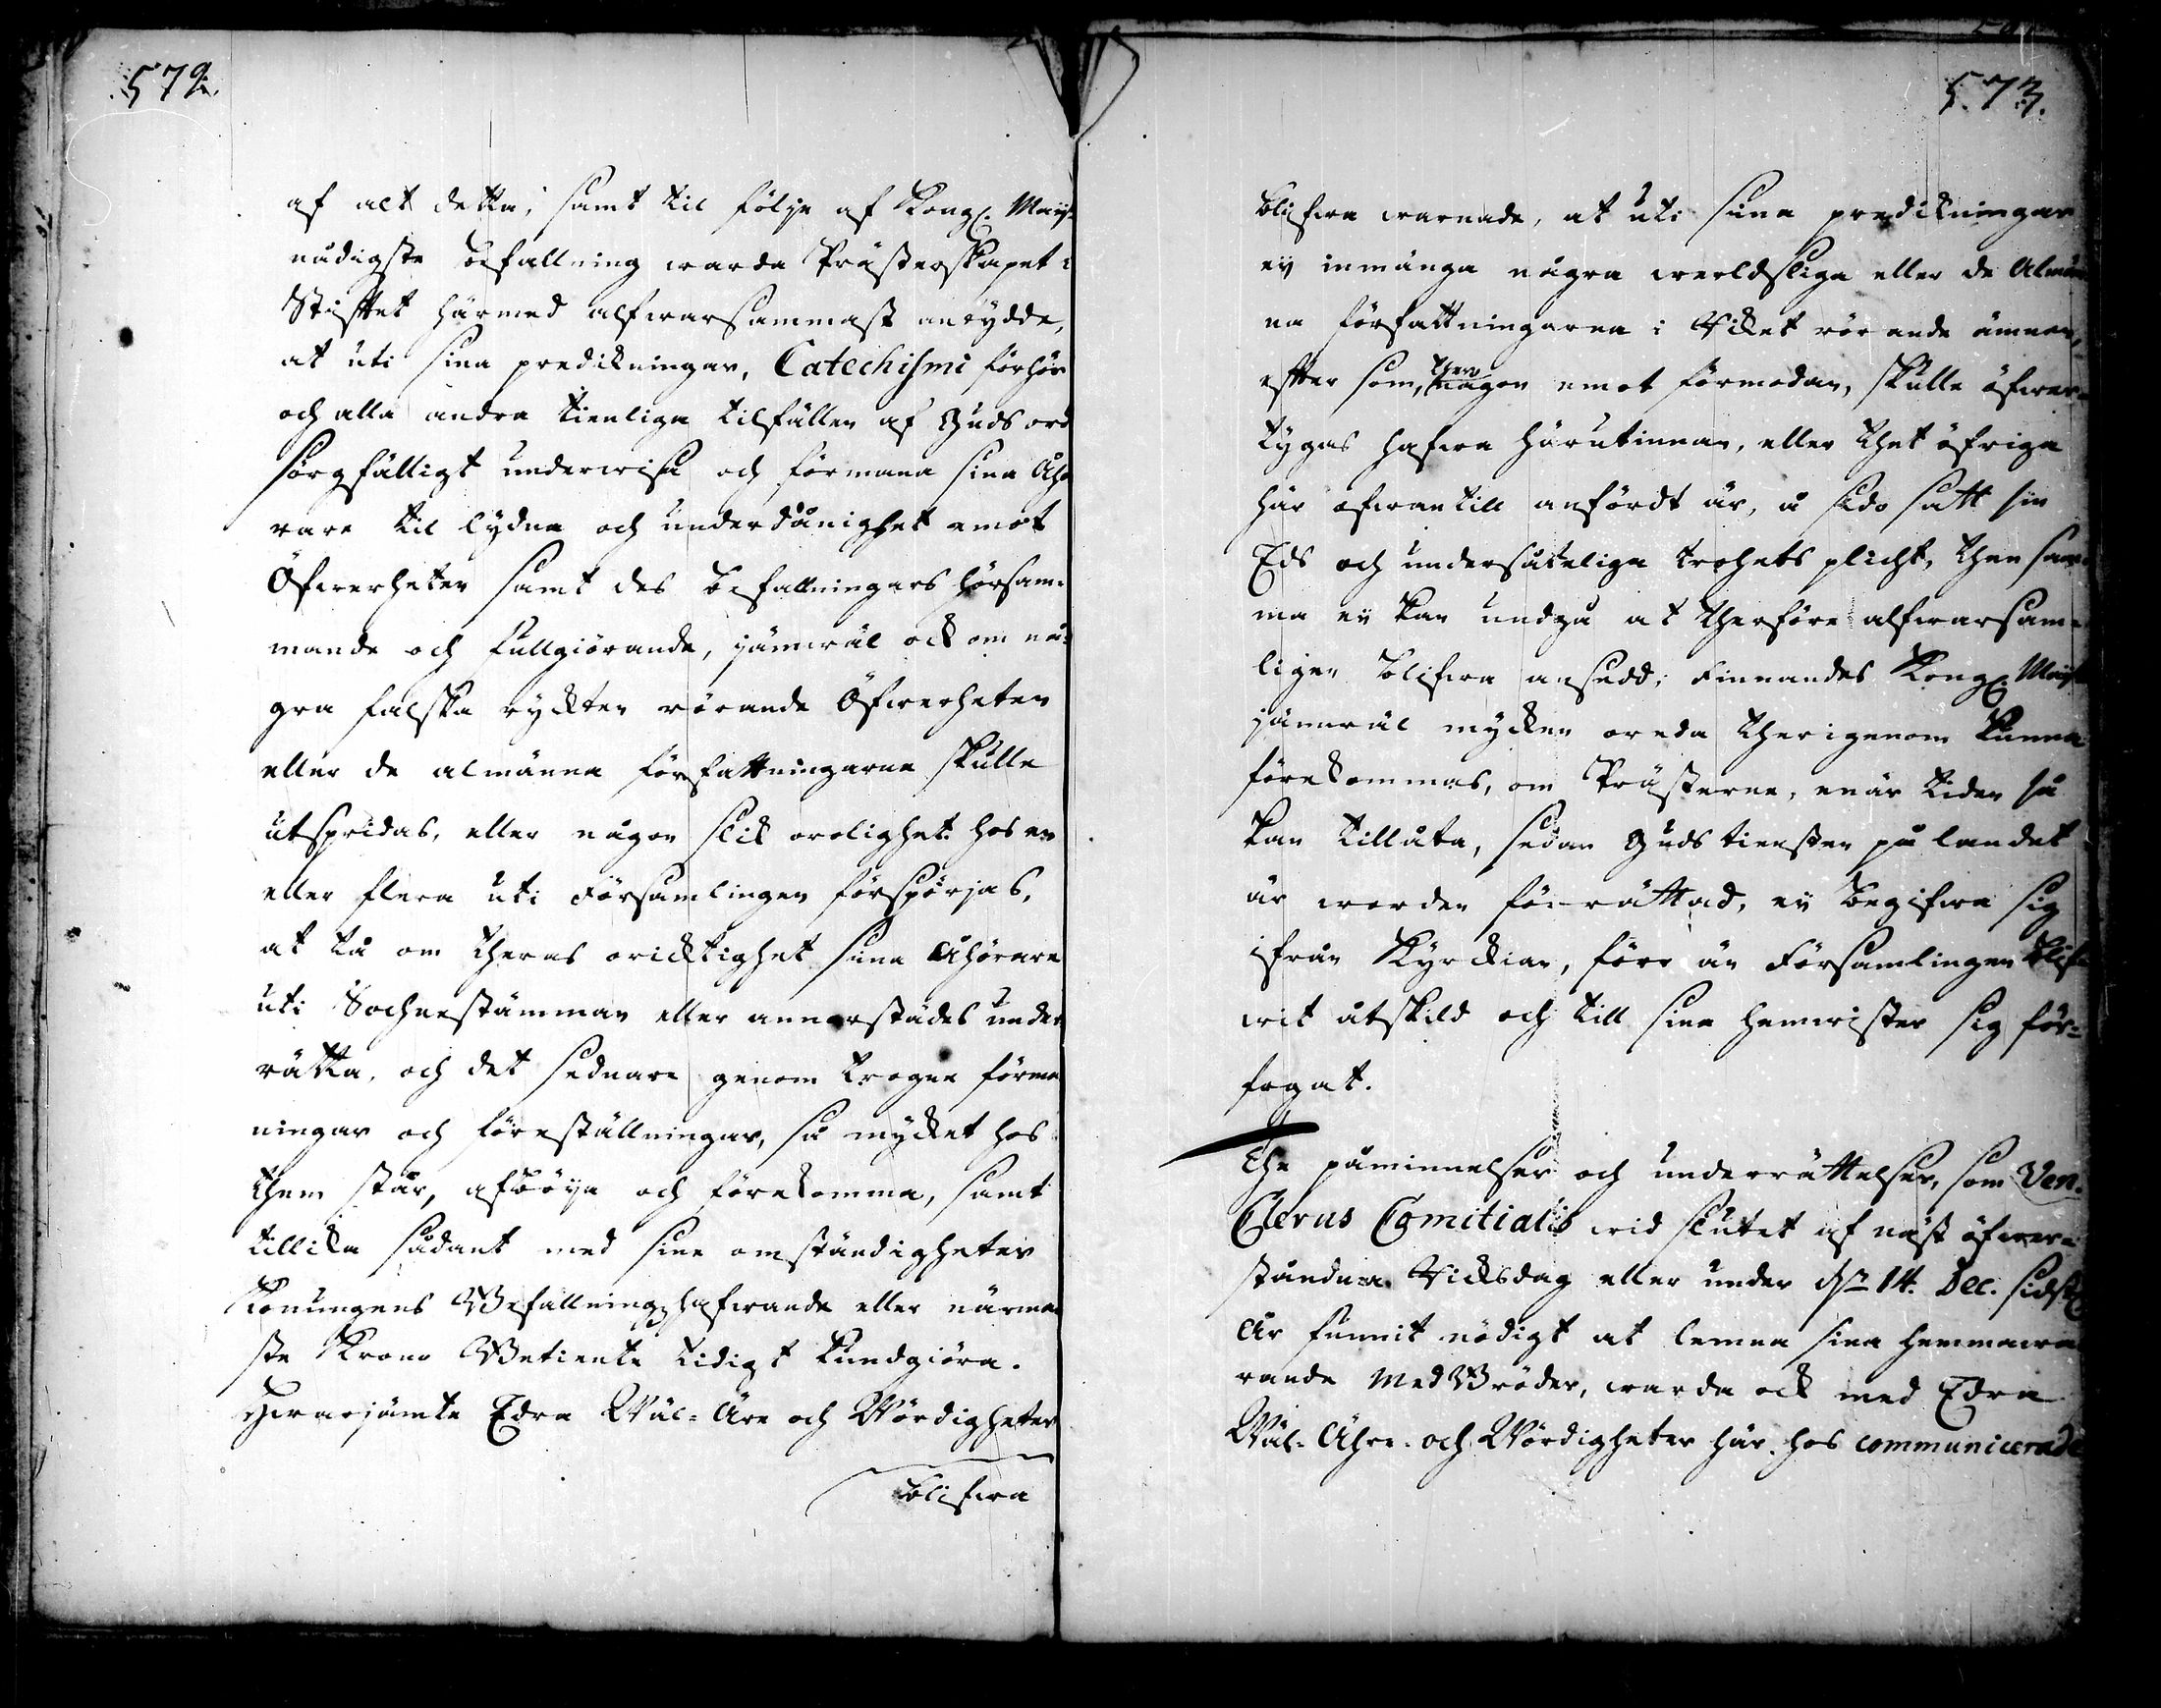 572.
af alt detta, samt til följe af Kongl. Maij:ts
nådigste befallning warda Prästerskapet i
Stiftet härmed alfwarsammast antydde,
at uti sina predikningar, Catechismi förhör
och alla andra tienliga tilfällen af Guds ord
sorgfälligt underwisa och förmana sina Åhö
rare til lydna och underdånighet emot
Öfwerheten samt des befallningars hörsam-
mande och fullgiörande, jämwäl ock om nå-
gra falska rykten rörande Öfwerheten
eller de almänna författningarna skulle
utspridas, eller någon slik orolighet hos en
eller flera uti Församlingen förspörjas,
at tå om theras oricktighet sina Åhörare
uti Sochnestämman eller annorstädes under
rätta, och det sednare genom trogne förma
ningar och föreställningar, så mycket hos
them står, afböija och förekomma, samt
tillika sådant med sina omständigheter
Konungens Befallningshafwande eller närma
ste Krono Betiente tidigt kundgiöra.
Hwarjämte Edra Wäl-Äre och Wördigheter
blifwa
573.
blifwa warnade, at uti sina predikningar
eij inmänga några werldsliga eller de Almän
na författningarna i Riket rörande ämnen,
efter som, ther någon emot förmodan, skulle öfwer-
tygas hafwa härutinnan, eller thet öfriga
här ofwantill anfördt är, å sido satt sin
Eds och undersåtelige trohets plicht, then sam
ma eij kan undgå at therföre alfwarsam-
ligen blifwa ansedd; Finnandes Kongl. Maij:t
jämwäl mycken oreda therigenom kunna
förekommas, om Prästerne, enär tiden så
kan tillåta, sedan Guds tiensten på landet
är worden förrättad, eij begifwa sig
ifrån Kyrckian, förr än Församlingen blif
wit åtskild och till sina hemwister sig för-
fogat.
The påminnelser och underrättelser, som Ven.
Clerus Comitialis wid slutet af näst öfwer-
ståndna Riksdag eller under d. 14. Dec. sidstl.
År funnit nödigt at lemna sina hemmawa
rande MedBröder, warda ock med Edra
Wäl-Ähre- och Wördigheter här hos communicerade